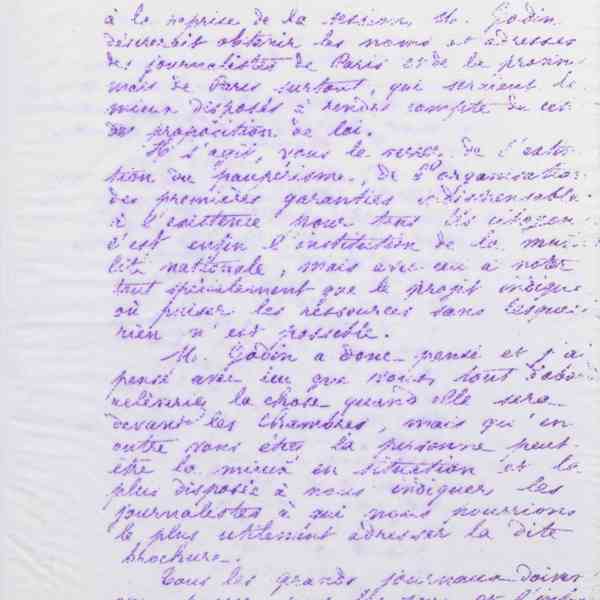 à la reprise de la session, M. Godin
désirerait obtenir les noms et adresses
des journalistes de Paris et de la provin
mais de Paris surtout, qui seraient le
mieux disposés à rendre compte de ces
proposition de loi.
Il s'agit, vous le verrez, de l'extin
tion du paupérisme, de l'organisation
des premières garanties indispensable
à l'existence pour tous les citoyen
c'est enfin l'institution de la mu
lité nationale, mais avec ceci à noter
tout spécialement que le projet indique
où puiser les ressources sans lesquel
rien n'est possible.
M. Godin a donc pensé et j'ai
pensé avec lui que vous, tout d'abo
relèveriez la chose quand elle sera
devant les Chambres, mais qu'en
outre vous étiez la personne peut
être la mieux en situation et la
plus disposée à nous indiquer les
journalistes à qui nous pourrions
le plus utilement adresser la dite
brochure.
Tous les grands journaux doiven